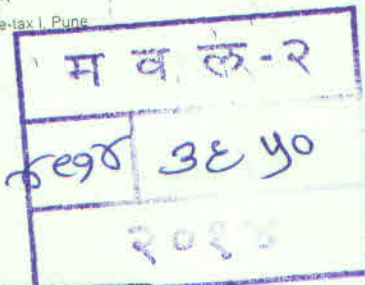 e-tax I, Pune
म व ल-२
४९१४ ३६ ५०
२०१४